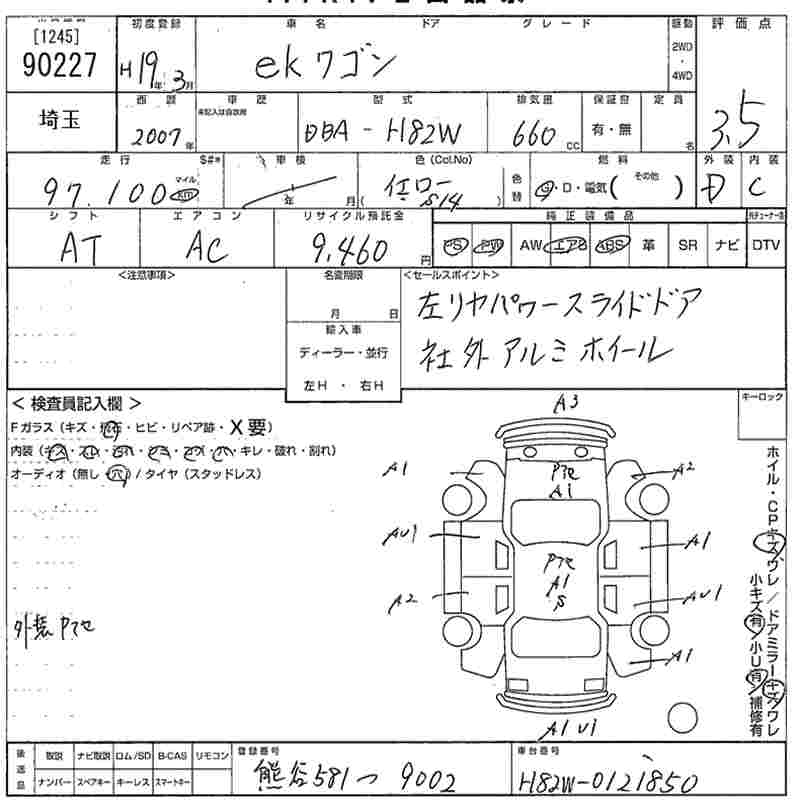 [1245]
90227
初度登録
H19年3月
車名 ドア グレード
ekワゴン
駆動
2WD
・
4WD
評価点
3.5
埼玉
西暦
2007年
車歴
未記入は自家用
型式
DBA-H82W
排気量
660 cc
保証書
有・無
定員
名
走行
97,100
マイル
km
S#*
車検
年 月
色(Col.No)
( S14 )
色替
燃料
G・D・電気( その他 )
外装
D
内装
C
シフト
AT
エアコン
AC
リサイクル預託金
9,460円
純正装備品
PS PW AW エアB ABS 革 SR ナビ DTV
<注意事項>
名変期限
月 日
輸入車
ディーラー・並行
左H・右H
<セールスポイント>
左リヤパワースライドドア
社外アルミホイール
<検査員記入欄>
Fガラス(キズ・飛石・ヒビ・リペア跡・X要)
内装(キズ・スレ・汚れ・シミ・コゲ・穴・キレ・破れ・割れ)
オーディオ(無し・穴)/タイヤ(スタッドレス)
外装Pアセ
キーロック
A3
A1
Pアセ
A1
A2
AU1
A1
Pアセ
A1
S
A2
AU1
A1
A1 U1
ホイル・CPキズワレ/ドアミラーキズワレ
小キズ有/小U有/補修有
後送品
取説 ナビ取説 ロム/SD B-CAS リモコン
ナンバー スペアキー キーレス スマートキー
登録番号
熊谷581つ9002
車台番号
H82W-0121850